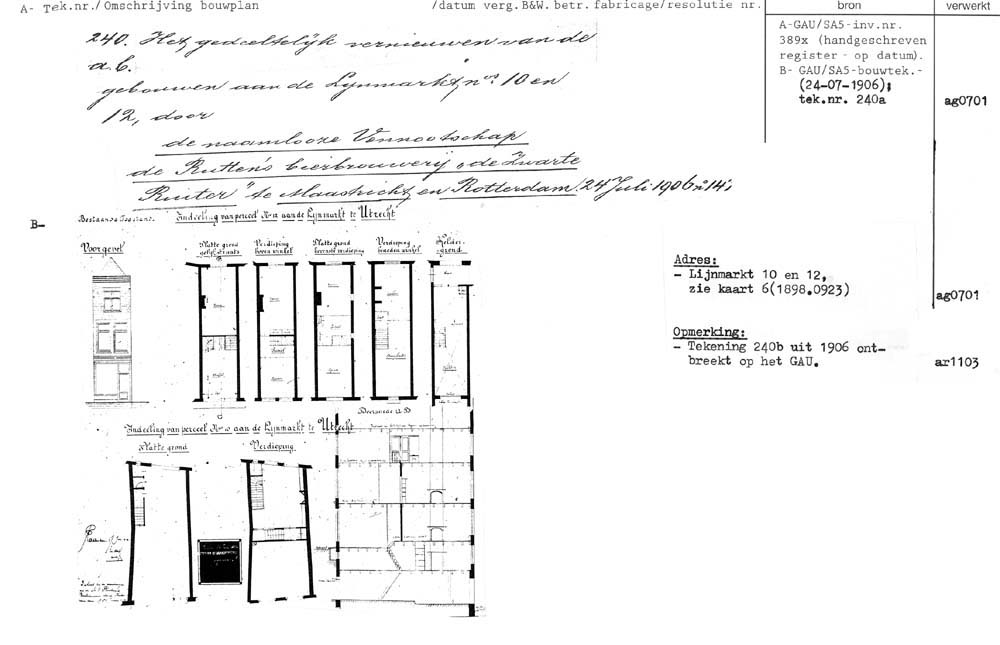 A- Tek.nr./Omschrijving bouwplan /datum verg.B&W. betr. fabricage/resolutie nr.
bron
verwerkt
240. Het gedeeltelijk vernieuwen van de
a. b.
gebouwen aan de Lynmarkt, nos. 10 en
12, door
de naamlooze Vennootschap
de Rutten's bierbrouwerij „de Zwarte
Ruiter" te Maastricht en Rotterdam. 24 Juli 1906
A-GAU/SA5-inv.nr.
389x (handgeschreven
register - op datum).
B- GAU/SA5-bouwtek.-
(24-07-1906);
tek.nr. 240a
ag0701
B-
Bestaande Toestand.
Indeeling van perceel No 12 aan de Lijnmarkt te Utrecht
Voorgevel
Platte grond
gelijkstraats
Verdieping
boven winkel
Platte grond
bovenste verdieping
Verdieping
beneden winkel
Kelder-
grond
Doorsnede A B
Indeeling van perceel No 10 aan de Lijnmarkt te Utrecht
Platte grond
Verdieping
Adres:
- Lijnmarkt 10 en 12,
zie kaart 6(1898.0923)
ag0701
Opmerking:
- Tekening 240b uit 1906 ont-
breekt op het GAU.
ar1103